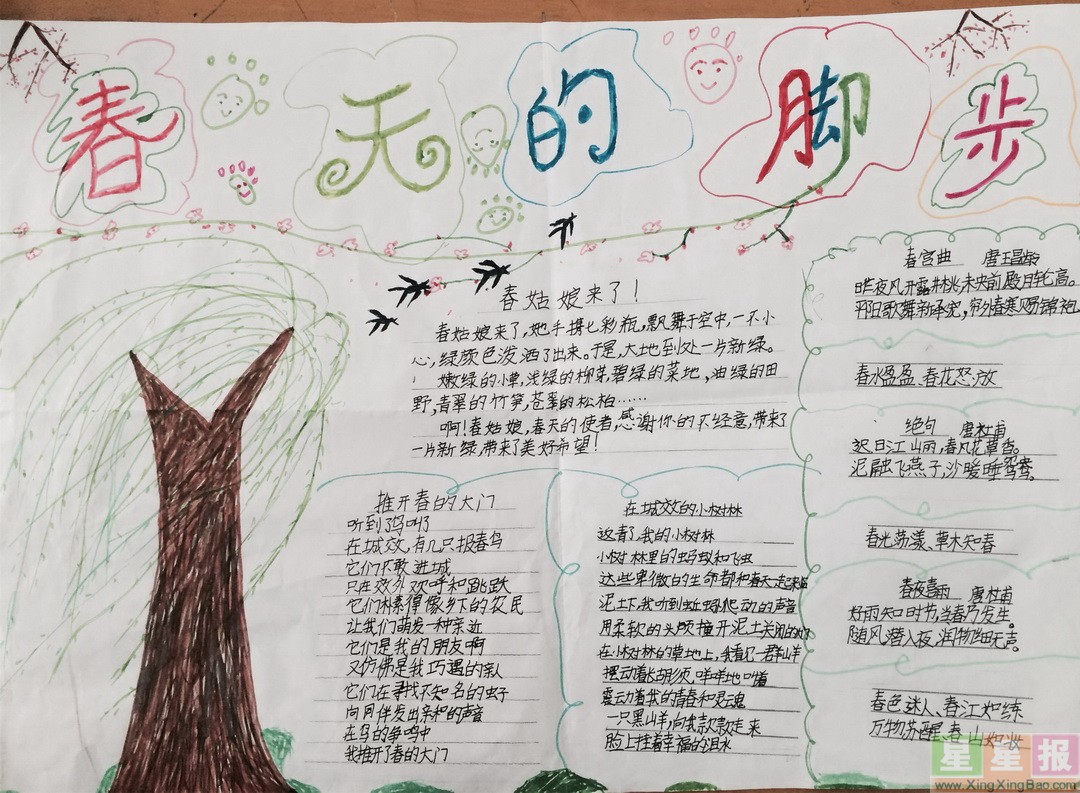 春天的脚步
春姑娘来了!
春姑娘来了,她手携七彩瓶,飘舞于空中,一不小
心,绿颜色泼洒了出来。于是,大地到处一片新绿。
嫩绿的小草,浅绿的柳芽,碧绿的菜地,油绿的田
野,青翠的竹笋,苍翠的松柏……
啊!春姑娘,春天的使者,感谢你的不经意,带来了
一片新绿带来了美好希望!
推开春的大门
听到了鸟叫了
在城效,有几只报春鸟
它们不敢进城
只在效外欢呼和跳跃
它们朴素得像乡下的农民
让我们萌发一种亲近
它们是我的朋友啊
又仿佛是我巧遇的亲人
它们在寻找不知名的虫子
向同伴发出亲和的声音
在鸟的争鸣中
我推开了春的大门
在城效的小树林
这青了,我的小树林
小树林里的蚂蚁和飞虫
这些卑微的生命都和春天一起来临
泥土下,我听到蚯蚓爬动的声音
用柔软的头颅撞开泥土关闭的大门
在小树林的草地上,我看见一群山羊
摆动着长胡须,咩咩地叫着
震动着我的青春和灵魂
一只黑山羊,向我款款走来
脸上挂着幸福的泪水
春宫曲 唐王昌龄
昨夜风开露井桃,未央前殿月轮高。
平阳歌舞新承宠,帘外春寒赐锦袍。
春水盈盈、春花怒放
绝句 唐杜甫
迟日江山丽,春风花草香。
泥融飞燕子,沙暖睡鸳鸯。
春光荡漾、草木知春
春夜喜雨 唐杜甫
好雨知时节,当春乃发生。
随风潜入夜,润物细无声。
春色迷人、春江如练
万物苏醒、春山如妆
星星报
www.XingXingBao.com